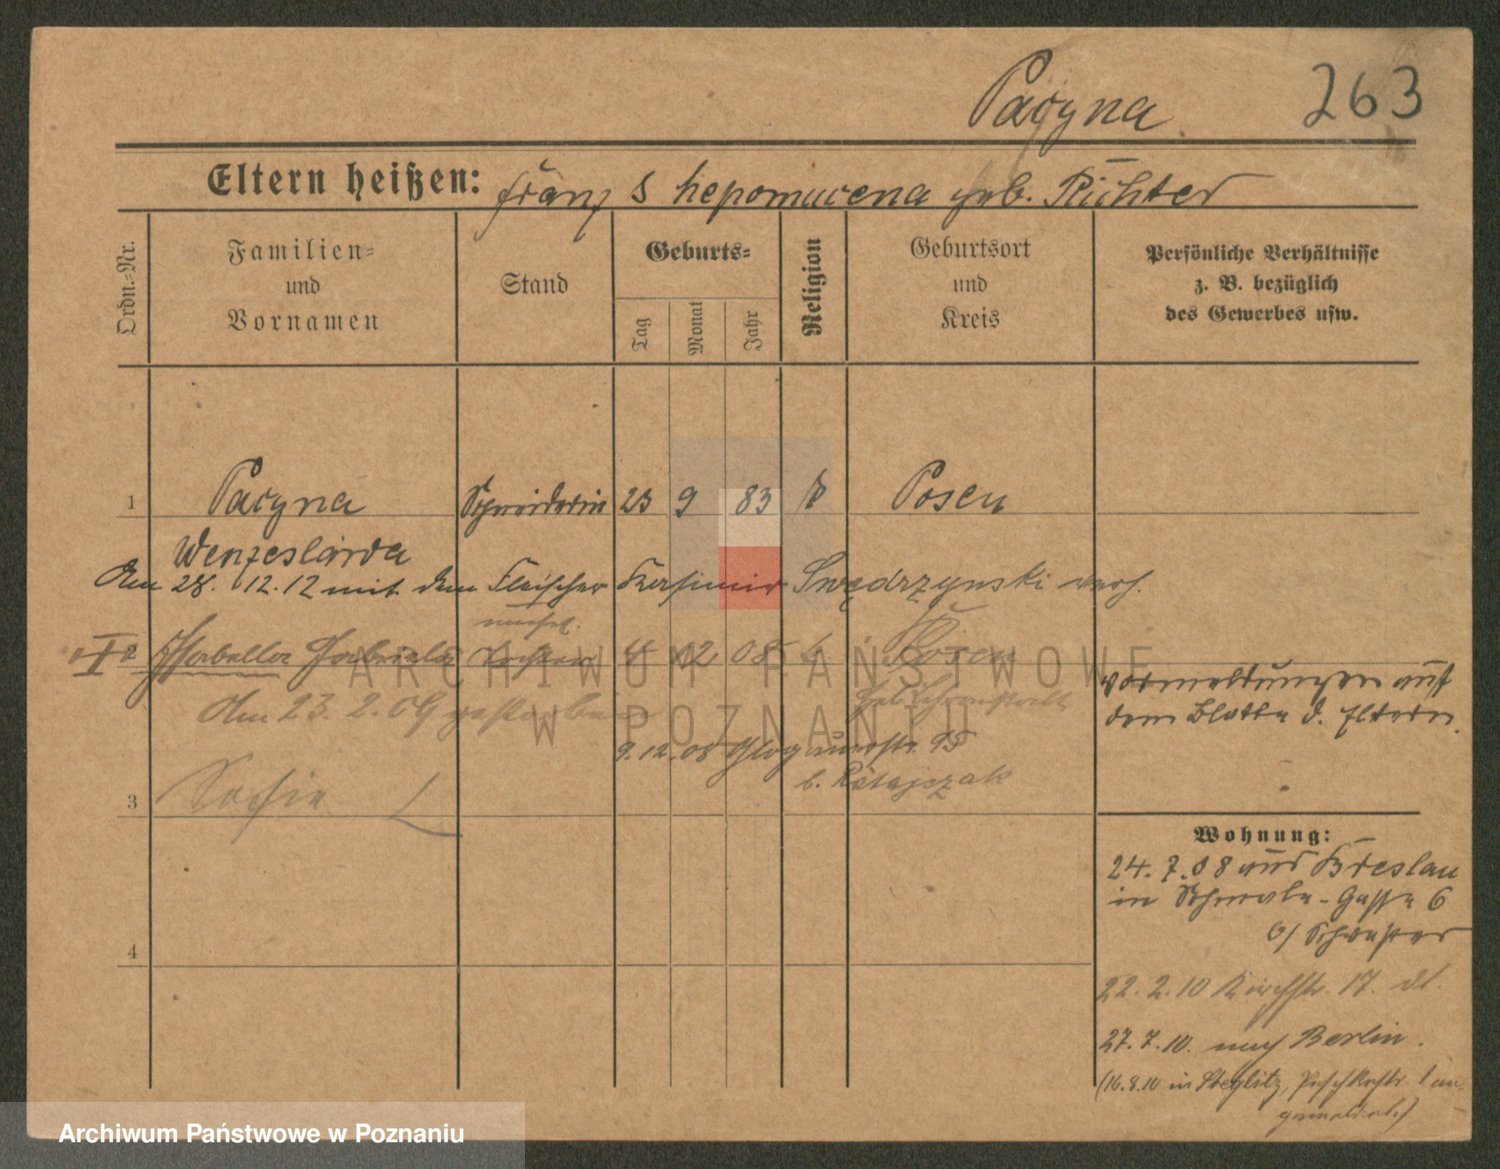 Pacyna 263
Eltern heißen: Franz & Nepomucena geb. Richter
Ordn.-Nr.
Familien- und Vornamen
Stand
Geburts-
Tag
Monat
Jahr
Religion
Geburtsort und Kreis
Persönliche Verhältnisse z. B. bezüglich des Gewerbes usw.
1 Pacyna Schneiderin 23 9 83 Posen
Wenzeslawa
Am 28. 12. 12 mit dem Fleischer Kasimir Swędrzynski verh.
2 Gabriela 12 08 Posen
Am 23. 2. 09 gestorben
Vormeldungen auf
dem Blatte d. Eltern.
9. 12. 08 95
b. Ratajszak
3 Sofie
Wohnung:
24. 7. 08 aus Breslau
in Gasse 6
b/ Schwester
4
22. 2. 10 Kirchstr. 17.
27. 7. 10. nach Berlin.
(16. 8. 10 in Steglitz, 1 an-
gemeldet.)
ARCHIWUM PAŃSTWOWE
W POZNANIU
Archiwum Państwowe w Poznaniu